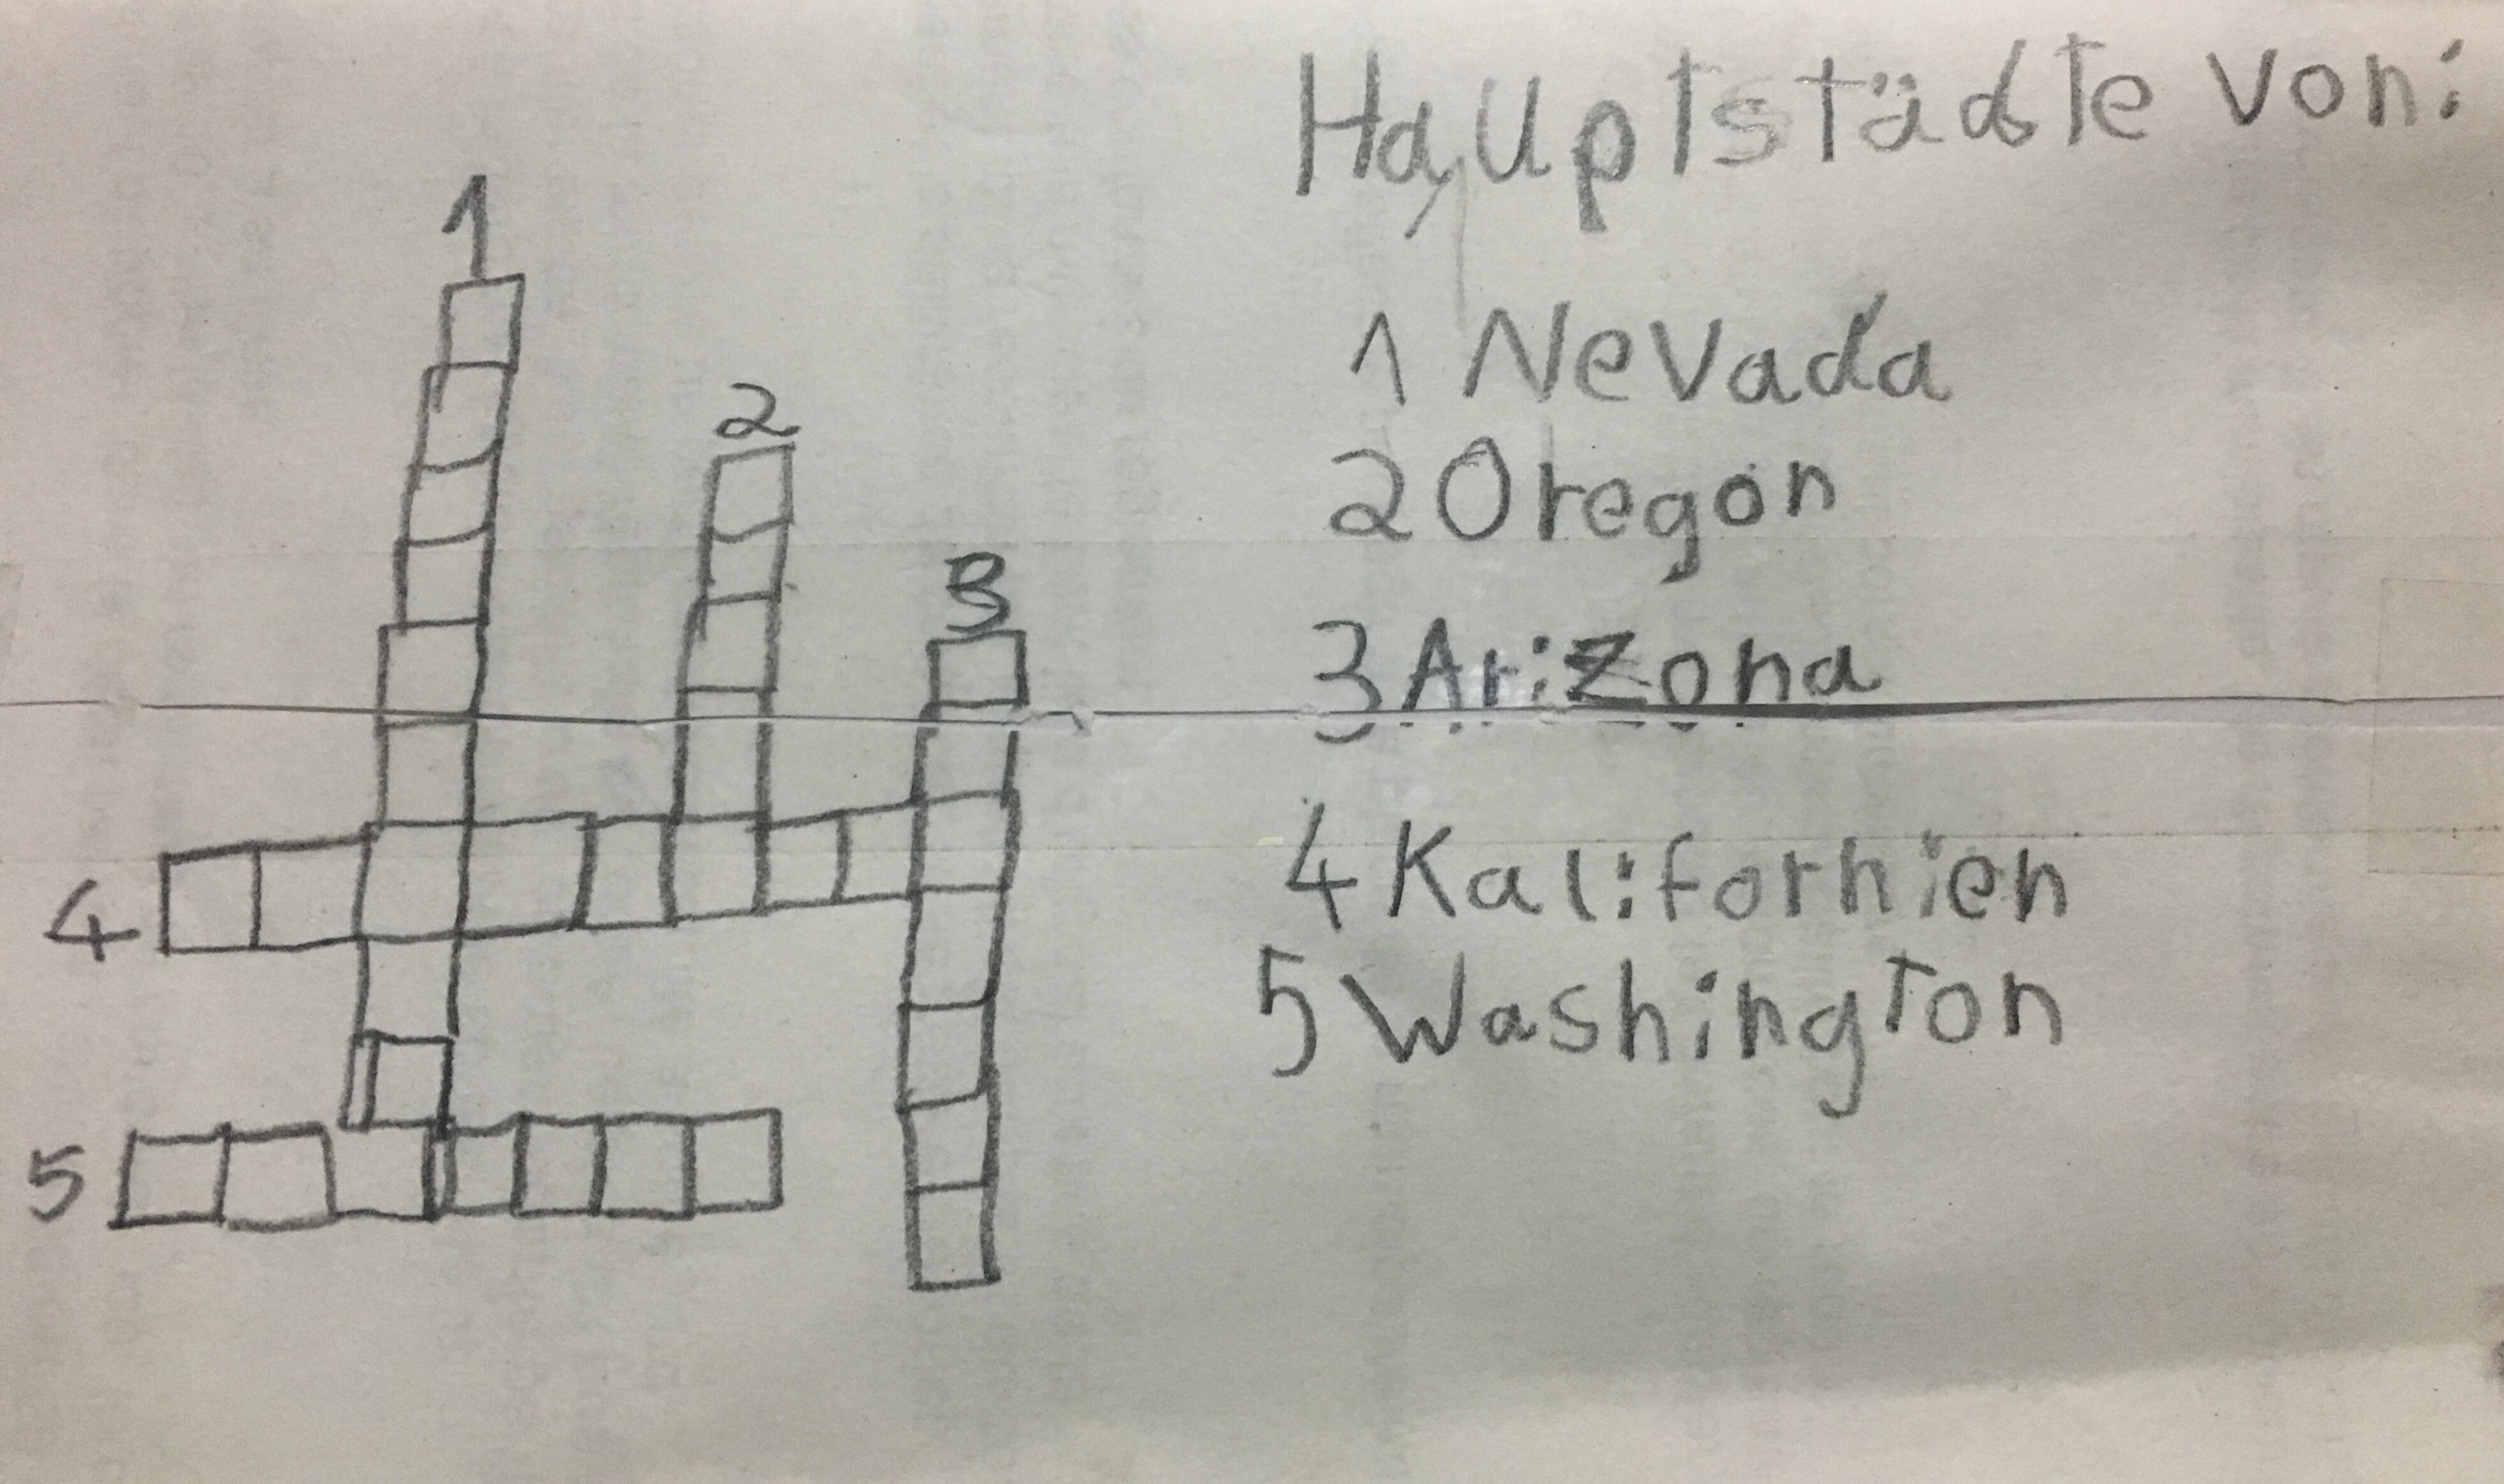 Hauptstädte von:
1
1 Nevada
2
2 Oregon
3
3 Arizona
4
4 Kalifornien
5 Washington
5